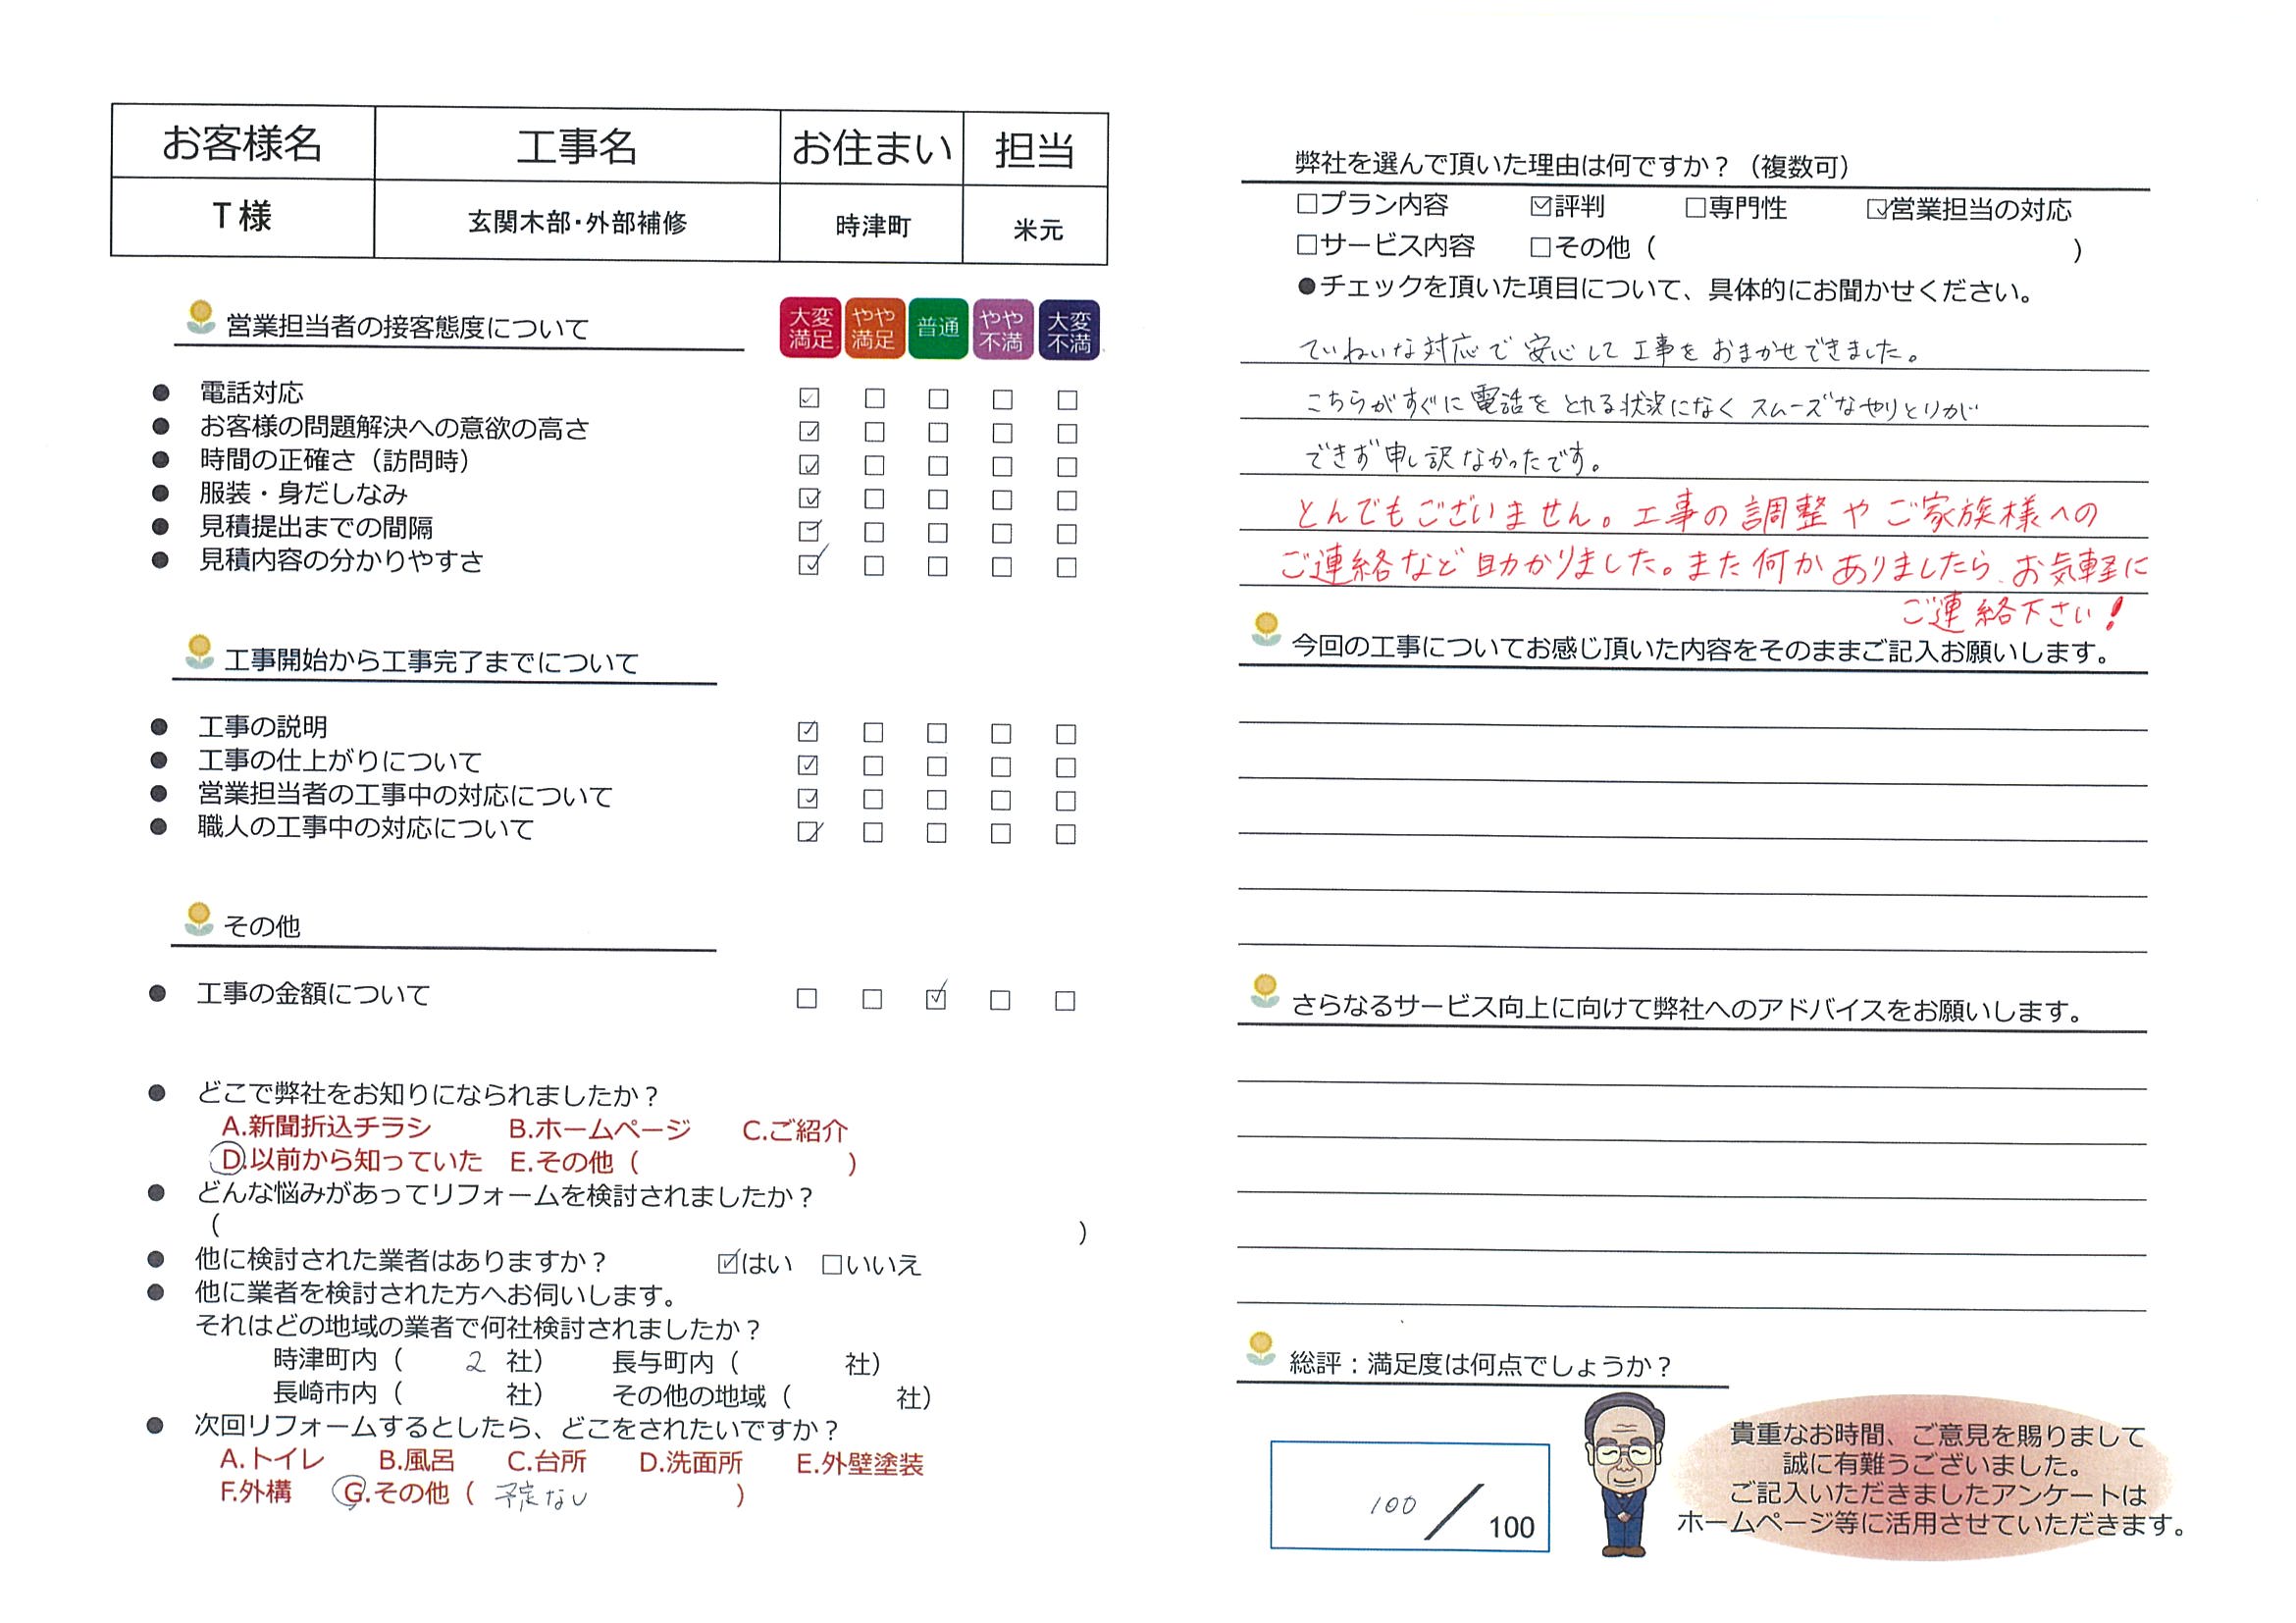 お客様名 工事名 お住まい 担当
T様 玄関木部・外部補修 時津町 米元
営業担当者の接客態度について 大変満足 やや満足 普通 やや不満 大変不満
● 電話対応 ☑ □ □ □ □
● お客様の問題解決への意欲の高さ ☑ □ □ □ □
● 時間の正確さ（訪問時） ☑ □ □ □ □
● 服装・身だしなみ ☑ □ □ □ □
● 見積提出までの間隔 ☑ □ □ □ □
● 見積内容の分かりやすさ ☑ □ □ □ □
工事開始から工事完了までについて
● 工事の説明 ☑ □ □ □ □
● 工事の仕上がりについて ☑ □ □ □ □
● 営業担当者の工事中の対応について ☑ □ □ □ □
● 職人の工事中の対応について ☑ □ □ □ □
その他
● 工事の金額について □ □ ☑ □ □
● どこで弊社をお知りになられましたか？
A.新聞折込チラシ B.ホームページ C.ご紹介
D.以前から知っていた E.その他（ ）
● どんな悩みがあってリフォームを検討されましたか？
（ ）
● 他に検討された業者はありますか？ ☑はい □いいえ
● 他に業者を検討された方へお伺いします。
それはどの地域の業者で何社検討されましたか？
時津町内（ 2 社） 長与町内（ 社）
長崎市内（ 社） その他の地域（ 社）
● 次回リフォームするとしたら、どこをされたいですか？
A.トイレ B.風呂 C.台所 D.洗面所 E.外壁塗装
F.外構 G.その他（ 予定なし ）
弊社を選んで頂いた理由は何ですか？（複数可）
□プラン内容 ☑評判 □専門性 ☑営業担当の対応
□サービス内容 □その他（ ）
●チェックを頂いた項目について、具体的にお聞かせください。
ていねいな対応で安心して工事をおまかせできました。
こちらがすぐに電話をとれる状況になくスムーズなやりとりが
できず申し訳なかったです。
とんでもございません。工事の調整やご家族様への
ご連絡など助かりました。また何かありましたら、お気軽に
ご連絡下さい！
今回の工事についてお感じ頂いた内容をそのままご記入お願いします。
さらなるサービス向上に向けて弊社へのアドバイスをお願いします。
総評：満足度は何点でしょうか？
100／100
貴重なお時間、ご意見を賜りまして
誠に有難うございました。
ご記入いただきましたアンケートは
ホームページ等に活用させていただきます。